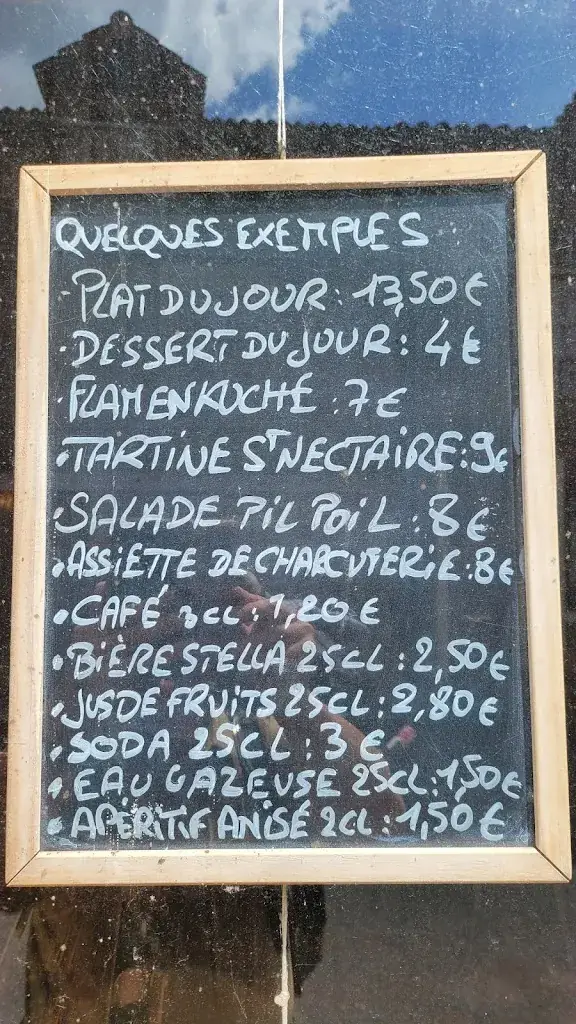 QUELQUES EXEMPLES
· PLAT DU JOUR : 13,50 €
· DESSERT DU JOUR : 4 €
· FLAMENKUCHE : 7 €
· TARTINE ST NECTAIRE : 9€
· SALADE PIL POIL : 8 €
· ASSIETTE DE CHARCUTERIE : 8 €
· CAFÉ 3CL : 1,20 €
· BIÈRE STELLA 25CL : 2,50 €
· JUS DE FRUITS 25CL : 2,80 €
· SODA 25CL : 3 €
· EAU GAZEUSE 25CL : 1,50 €
· APÉRITIF ANISÉ 2CL : 1,50 €